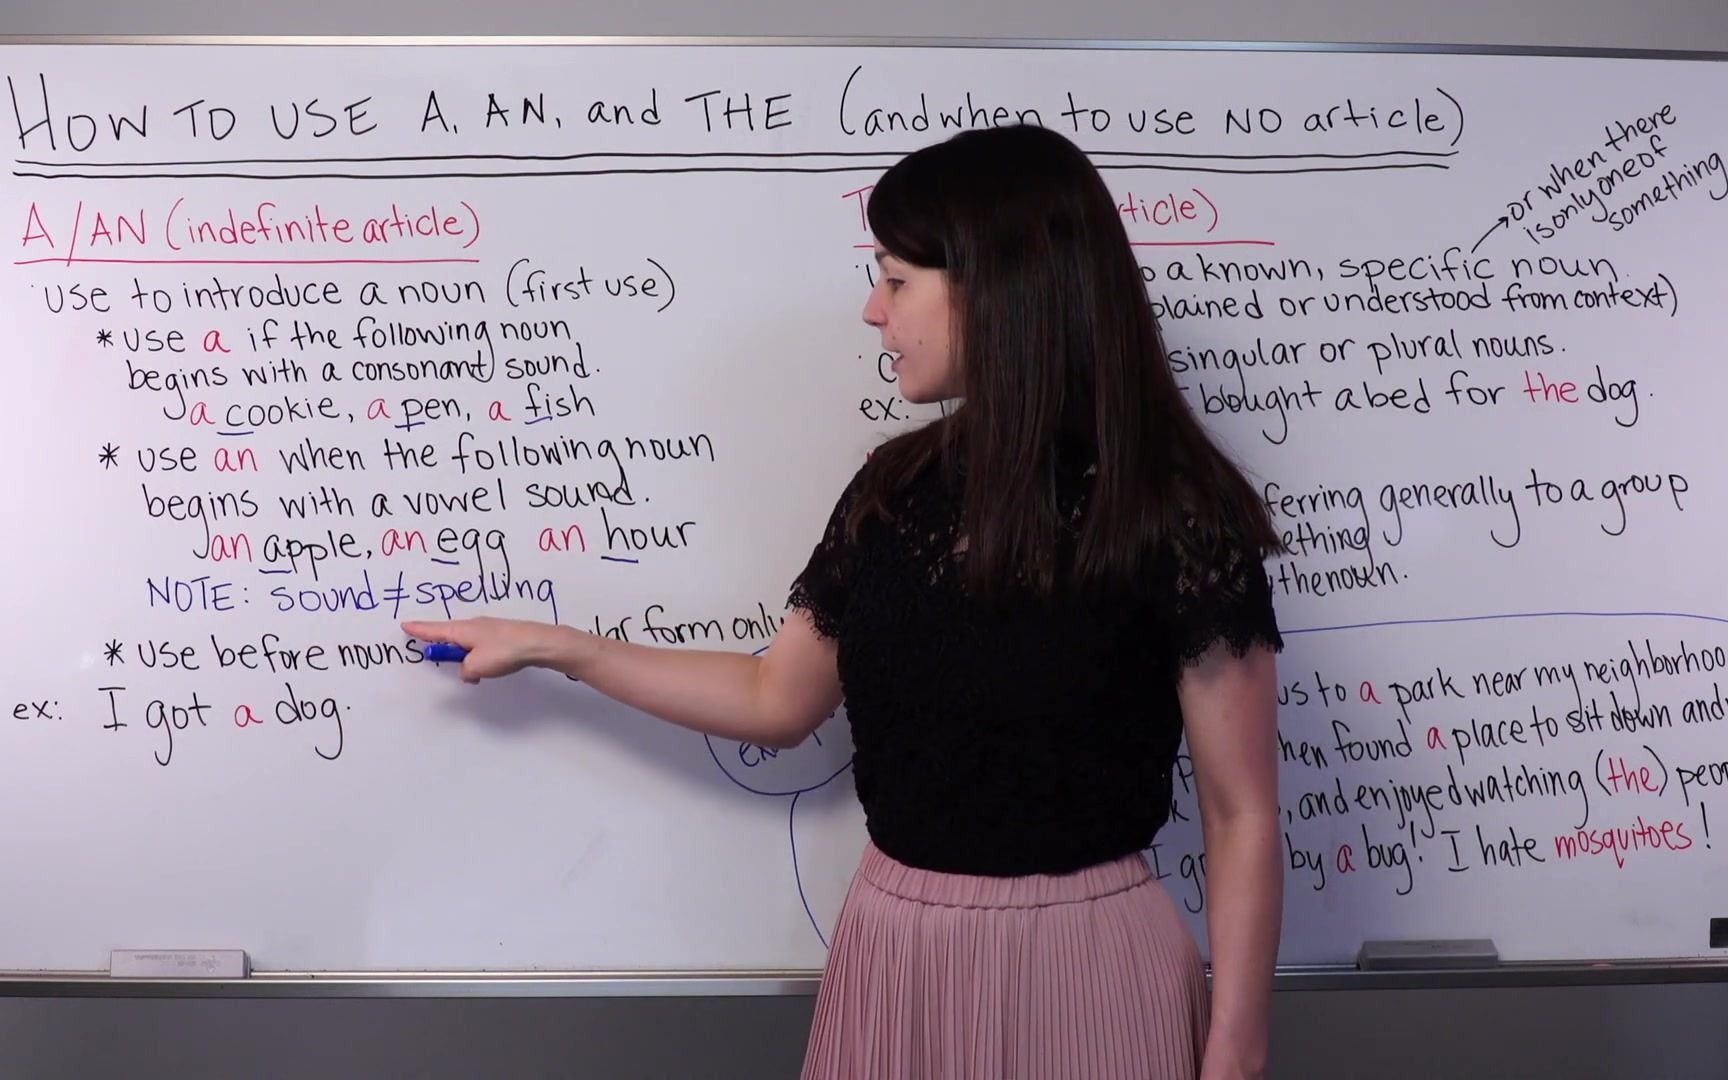 HOW TO USE A, AN, and THE (and when to use NO article)
A/AN (indefinite article)
· Use to introduce a noun (first use)
* use a if the following noun
begins with a consonant sound.
a cookie, a pen, a fish
* use an when the following noun
begins with a vowel sound.
an apple, an egg an hour
NOTE: sound ≠ spelling
* use before nouns
form only
ex: I got a dog.
or when there
is only one of
something
a known, specific noun
or understood from context)
singular or plural nouns.
ex:
bought a bed for the dog.
generally to a group
the noun.
to a park near my
found a place to sit down and
, and enjoyed watching (the)
I
by a bug! I hate mosquitoes!